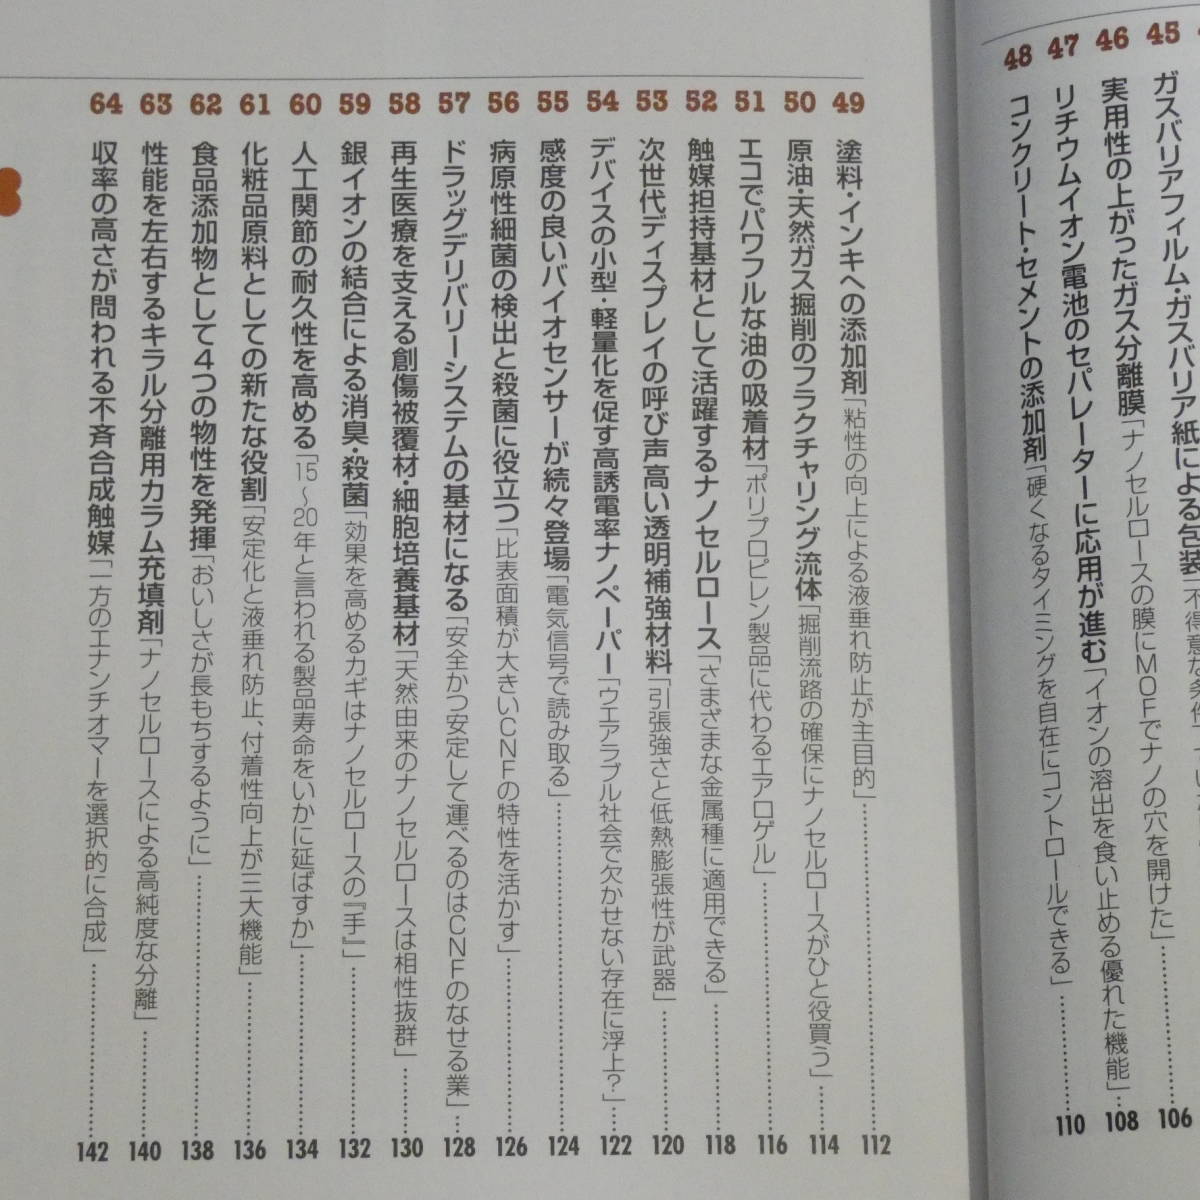 45 ガスバリアフィルム・ガスバリア紙による包装
46 実用性の上がったガス分離膜「ナノセルロースの膜にMOFでナノの穴を開けた」……106
47 リチウムイオン電池のセパレーターに応用が進む「イオンの溶出を食い止める優れた機能」……108
48 コンクリート・セメントの添加剤「硬くなるタイミングを自在にコントロールできる」……110
49 塗料・インキへの添加剤「粘性の向上による液垂れ防止が主目的」……112
50 原油・天然ガス掘削のフラクチャリング流体「掘削流路の確保にナノセルロースがひと役買う」……114
51 エコでパワフルな油の吸着材「ポリプロピレン製品に代わるエアロゲル」……116
52 触媒担持基材として活躍するナノセルロース「さまざまな金属種に適用できる」……118
53 次世代ディスプレイの呼び声高い透明補強材料「引張強さと低熱膨張性が武器」……120
54 デバイスの小型・軽量化を促す高誘電率ナノペーパー「ウエアラブル社会で欠かせない存在に浮上?」……122
55 感度の良いバイオセンサーが続々登場「電気信号で読み取る」……124
56 病原性細菌の検出と殺菌に役立つ「比表面積が大きいCNFの特性を活かす」……126
57 ドラッグデリバリーシステムの基材になる「安全かつ安定して運べるのはCNFのなせる業」……128
58 再生医療を支える創傷被覆材・細胞培養基材「天然由来のナノセルロースは相性抜群」……130
59 銀イオンの結合による消臭・殺菌「効果を高めるカギはナノセルロースの『手』」……132
60 人工関節の耐久性を高める「15〜20年と言われる製品寿命をいかに延ばすか」……134
61 化粧品原料としての新たな役割「安定化と液垂れ防止、付着性向上が三大機能」……136
62 食品添加物として4つの物性を発揮「おいしさが長もちするように」……138
63 性能を左右するキラル分離用カラム充填剤「ナノセルロースによる高純度な分離」……140
64 収率の高さが問われる不斉合成触媒「一方のエナンチオマーを選択的に合成」……142